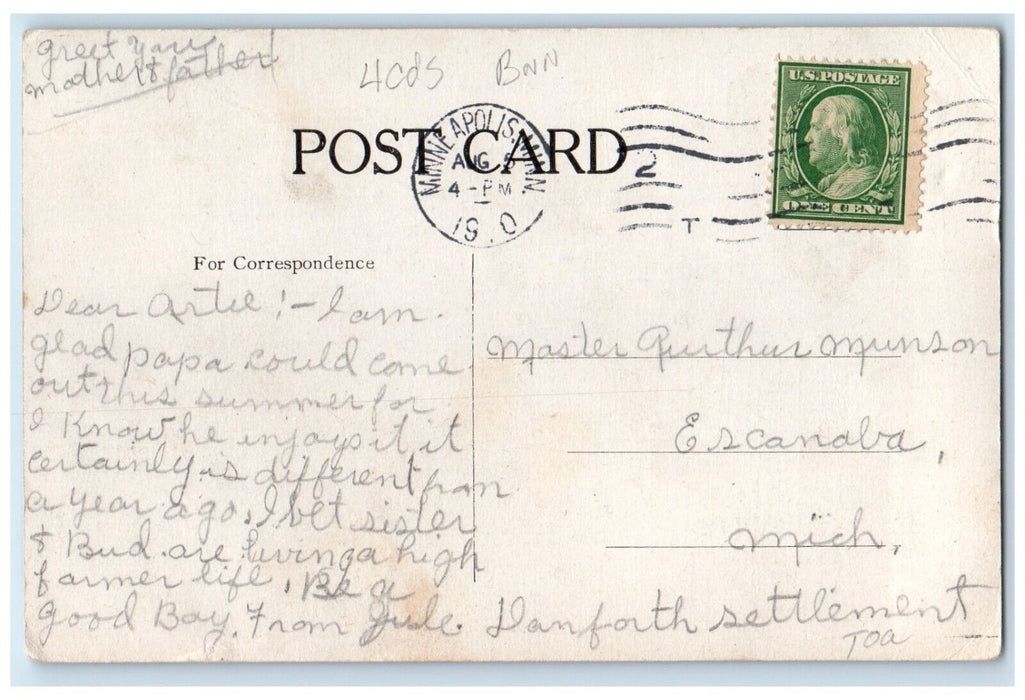 greet your
mother & father
4cds BNN
U.S. POSTAGE
ONE CENT
POST CARD
MINNEAPOLIS, MINN.
AUG
4 - PM
19 0
2
T
For Correspondence
Dear Artie! - I am.
glad papa could come
out this summer for
I Know he enjoys it it
certainly is different from
a year ago. I bet sister
& Bud are living a high
farmer life. Be a
good Boy. From
Master Aurthur Munson
Escanaba,
Mich,
Danforth settlement
TOA